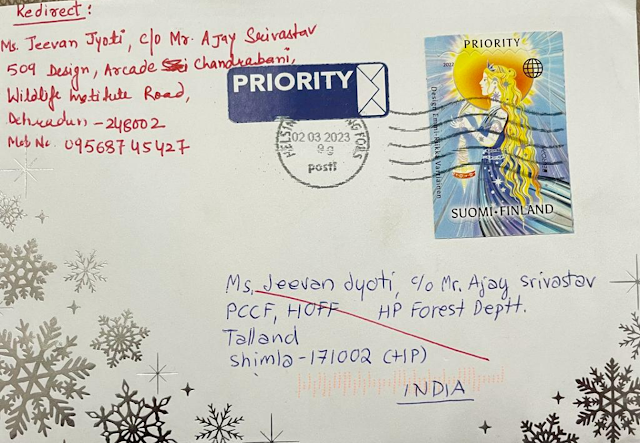 Redirect:
Ms. Jeevan Jyoti, c/o Mr. Ajay Srivastav
509 Design, Arcade Chandrabani,
Wildlife Institute Road,
Dehradun - 248002
Mob No. 09568745427
PRIORITY
HELSINKI HELSINGFORS
02 03 2023
posti
PRIORITY
2022
SUOMI • FINLAND
Ms. Jeevan Jyoti, c/o Mr. Ajay Srivastav
PCCF, HOFF HP Forest Deptt.
Talland
Shimla - 171002 (HP)
INDIA